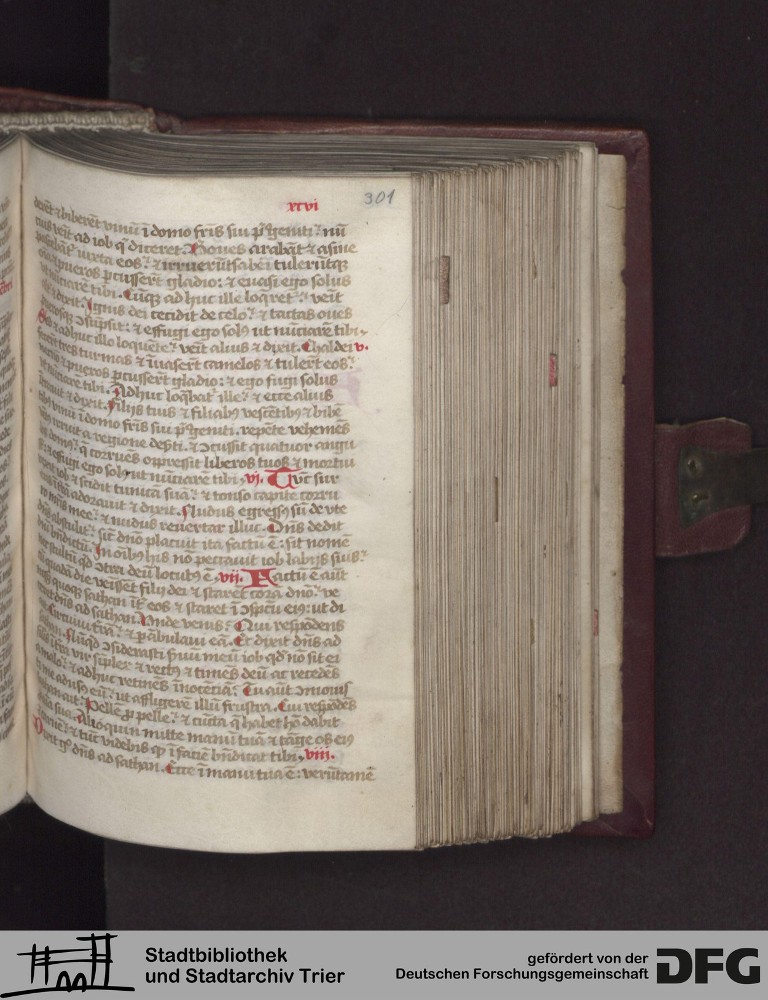 xcvi
301
biberēt vinū ī domo fr̄is sui p̄'geniti: nū
tius veīt ad iob q̄ diceret. Boues arabāt & asine
iuxta eos: & irruerūt sabei tulerūtq
& pueros ꝑcusserūt gladio: & euasi ego solus
ut nūciarē tibi. Cūq; adhuc ille loq̄ret: veīt
& dixit. Ignis dei cecidit de celo: & tactas oues
ↄsūpsit: & effugi ego solꝰ ut nūciarē tibi.
Sed & adhuc illo loquēte: veīt alius & dixit. Chaldei v.
fecerūt tres turmas & īuaserūt camelos & tulerūt eos:
& pueros ꝑcusserūt gladio: & ego fugi solus
ut nūciarē tibi. Adhuc loq̄bat ille: & ecce alius
ītrauit & dixit. Filijs tuis & filiabꝰ vescētibꝰ & bibē
tibꝰ vinū ī domo fr̄is sui p̄'geniti. repēte vehemēs
vētꝰ irruit a regione deꝑti: & ↄcussit quatuor angu
los domꝰ: q̄ corruēs oppressit liberos tuos & mortui
sūt: & effugi ego solꝰ ut nūciarē tibi. vj. Tūc sur
rexit iob & scidit tunicā suā: & tonso capite corru
ēs ī t̄rā adorauit & dixit. Nudus egressꝰ sū de vte
ro mr̄is mee: & nudus reuertar illuc. Dn̄s dedit
dn̄s abstulit: sic̄ dn̄o placuit ita factū ē: sit nomē
dn̄i bn̄dictū. In oībꝰ his nō peccauit iob labijs suis:
neq; stultū qd ↄtra deū locutꝰ ē. vij. Factū ē aūt
cū quadā die veissēt filij dei & starēt corā dn̄o: ve
nissetq; quoq; sathan īt̄ eos & staret ī ↄspc̄u eiꝰ: ut di
ceret dn̄s ad sathan. Vnde venis: Qui respōdens
ait. Circuiui t̄rā: & ꝑābulaui eā. Et dixit dn̄s ad
sathan. Nūqd ↄsiderasti ẜuū meū iob qd nō sit ei
silis ī t̄ra vir simplex & rectꝰ & timēs deū ac recedēs
a malo: & adhuc retinēs īnocētiā: Tu aūt ↄmouisti
me aduꝰ eū: ut affligerē illū frustra. Cui respōdēs
sathan ait. Pellē ꝓ pelle: & cūcta q̄ habet hō dabit
ꝓ aīa sua. Alioquin mitte manū tuā & tāge os eiꝰ
& carnē: & tūc videbis qp ī faciē bn̄dicat tibi. viij.
Dixit gͦ dn̄s ad sathan. Ecce ī manu tua ē: verūtamē
Stadtbibliothek
und Stadtarchiv Trier
gefördert von der
Deutschen Forschungsgemeinschaft
DFG